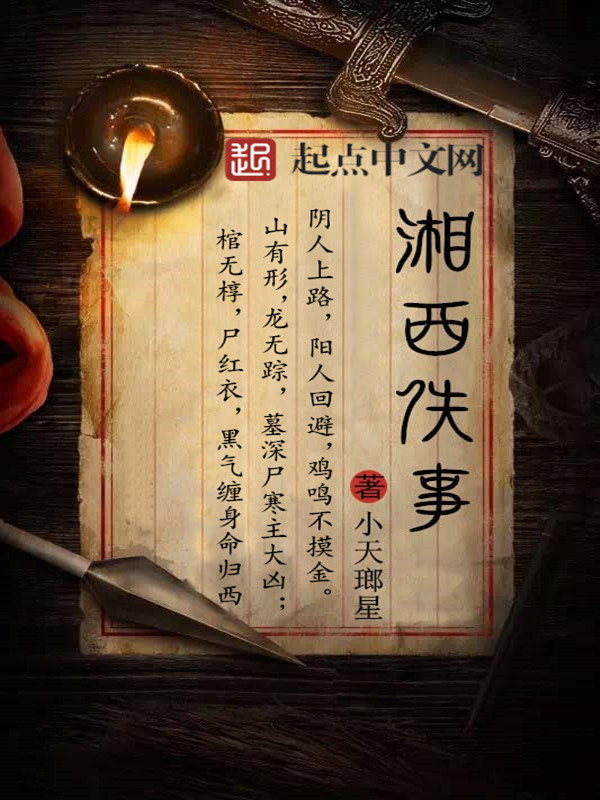 起 起点中文网
湘西佚事
著 小天瑯星
阴人上路，阳人回避，鸡鸣不摸金。
山有形，龙无踪，墓深尸寒主大凶；
棺无椁，尸红衣，黑气缠身命归西